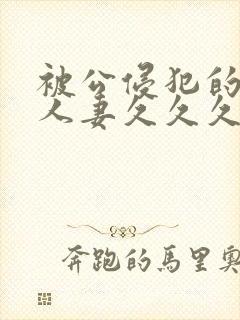 被公侵犯的
人妻久久久
奔跑的馬里奧